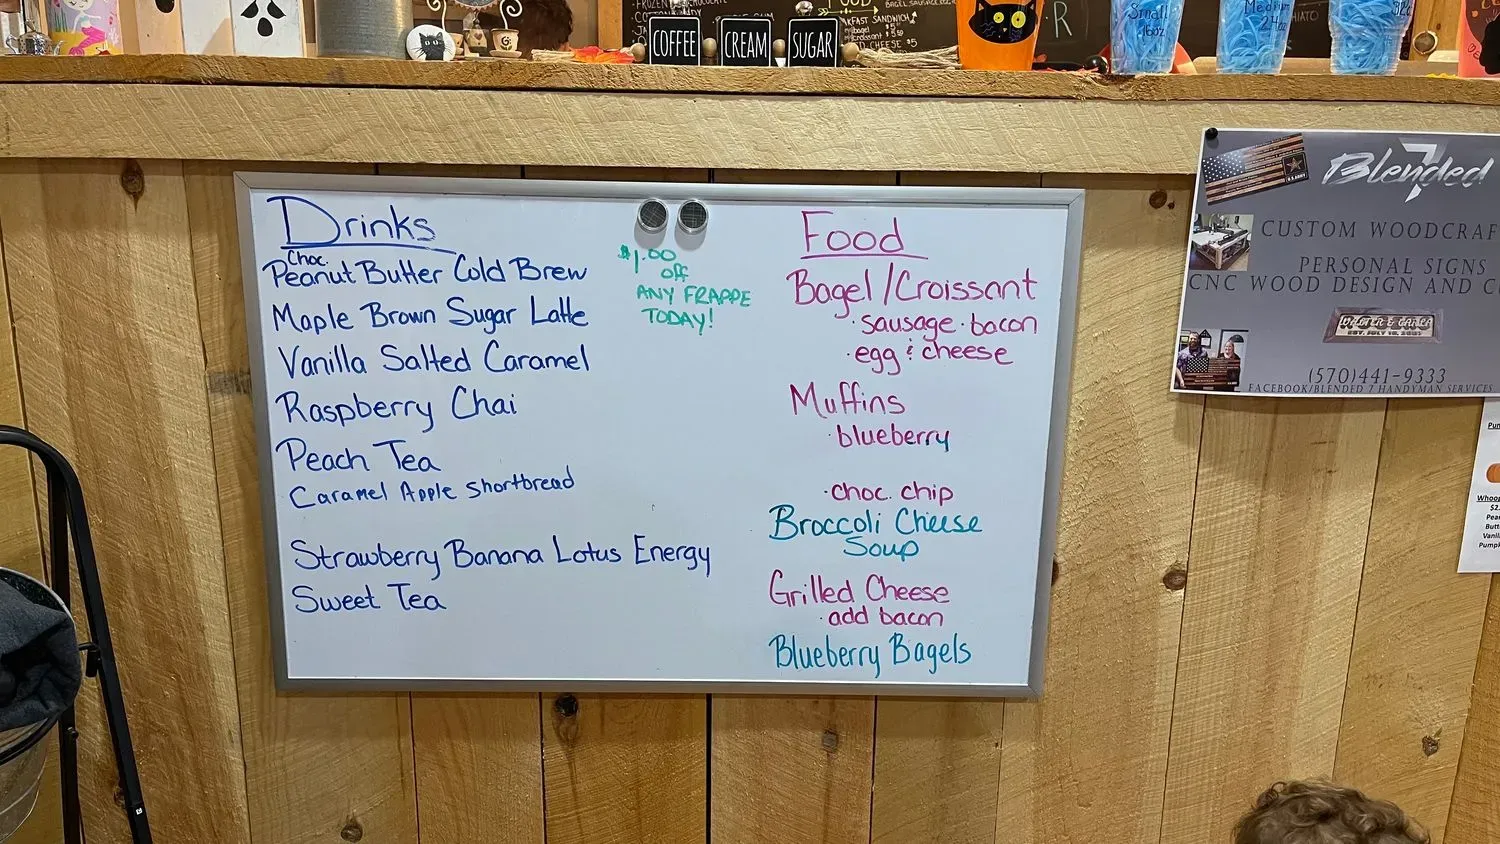 FOOD
COFFEE
CREAM
SUGAR
CHEESE $5
R
Small
16oz
Medium
24oz
32oz
Drinks
Choc.
Peanut Butter Cold Brew
Maple Brown Sugar Latte
Vanilla Salted Caramel
Raspberry Chai
Peach Tea
Caramel Apple Shortbread
Strawberry Banana Lotus Energy
Sweet Tea
$1.00
off
ANY FRAPPE
TODAY!
Food
Bagel/Croissant
·sausage·bacon
·egg & cheese
Muffins
·blueberry
·choc. chip
Broccoli Cheese
Soup
Grilled Cheese
·add bacon
Blueberry Bagels
7
Blended
U.S. ARMY
CUSTOM WOODCRAF
PERSONAL SIGNS
CNC WOOD DESIGN AND C
(570)441-9333
FACEBOOK/BLENDED 7 HANDYMAN SERVICES
Pum
Whoop
$2.
Pea
Butt
Vanil
Pumpk